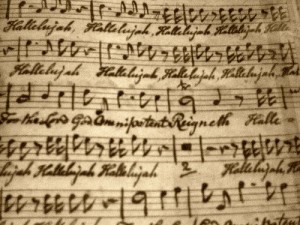 Hallelujah, Hallelujah, Hallelujah Hallelujah
Hallelujah Hallelujah Hallelujah, Hallelujah, Hal
For the Lord God Omnipotent Reigneth Halle-
Hallelujah Hallelujah Hallelujah Hallelujah Hallelujah
Lord God Omnipotent